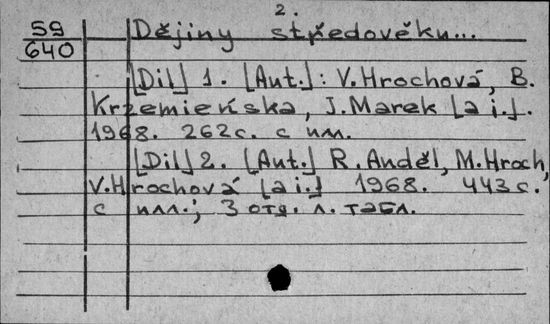 2.
59
640
Dějiny středověku...
[Díl] 1. [Aut.]: V. Hrochová, B.
Krzemieńska, J. Marek [a i.].
1968. 262 с. с илл.
[Díl] 2. [Aut.] R. Anděl, M. Hroch,
V. Hrochová [a i.] 1968. 443 с.
с илл.; 3 отд. л. табл.